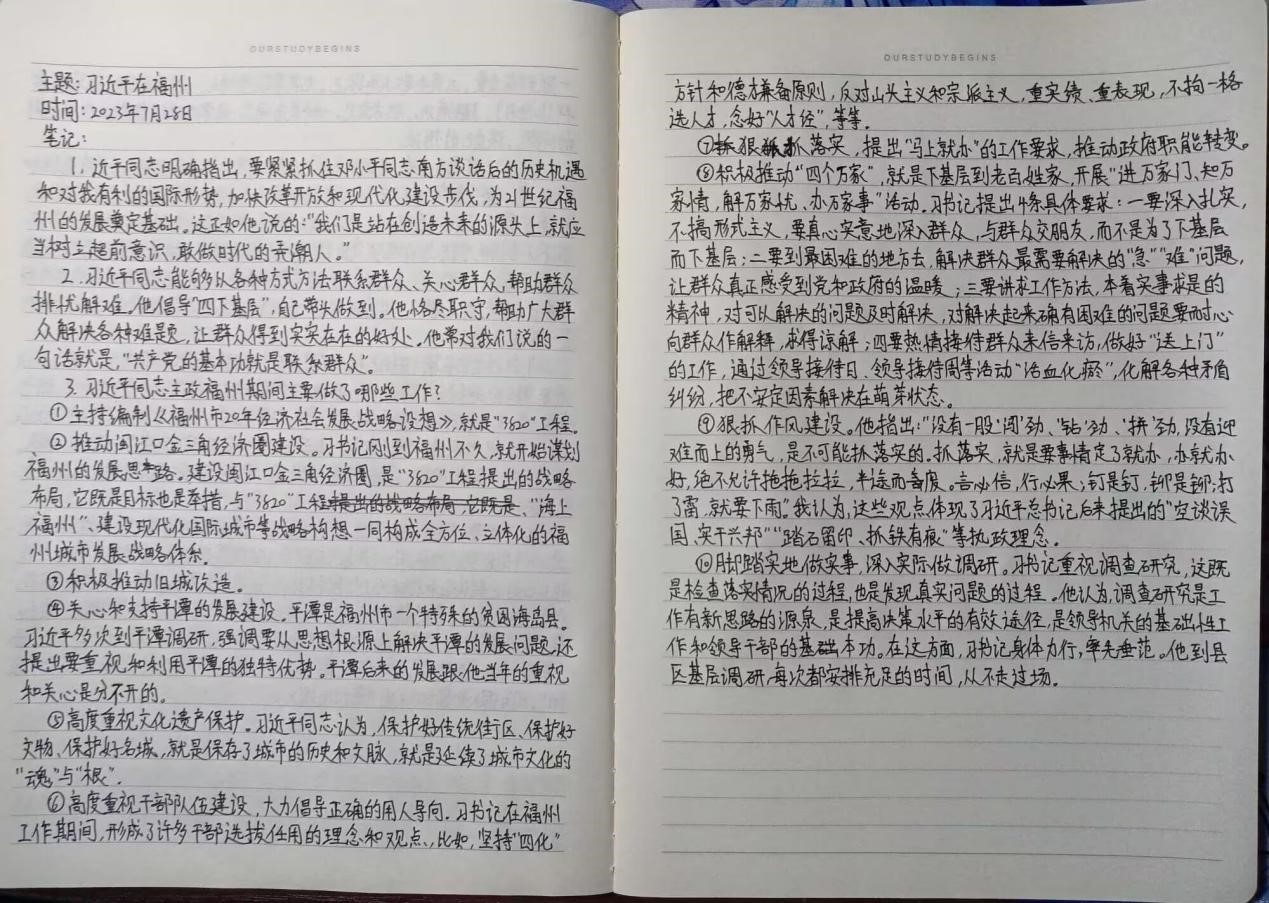 OURSTUDYBEGINS
主题：习近平在福州
时间：2023年7月28日
笔记：
1. 近平同志明确指出，要紧紧抓住邓小平同志南方谈话后的历史机遇
和对我有利的国际形势，加快改革开放和现代化建设步伐，为21世纪福
州的发展奠定基础。这正如他说的："我们是站在创造未来的源头上，就应
当树立超前意识，敢做时代的弄潮人。"
2. 习近平同志能够从各种方式方法联系群众、关心群众，帮助群众
排忧解难。他倡导"四下基层"，自己带头做到。他恪尽职守，帮助广大群
众解决各种难题，让群众得到实实在在的好处。他常对我们说的一
句话就是，"共产党的基本功就是联系群众"。
3. 习近平同志主政福州期间主要做了哪些工作？
①主持编制《福州市20年经济社会发展战略设想》，就是"3820"工程。
②推动闽江口金三角经济圈建设。习书记刚到福州不久，就开始谋划
福州的发展思路。建设闽江口金三角经济圈，是"3820"工程提出的战略
布局，它既是目标也是举措，与"3820"工程提出的战略布局，它既是、"海上
福州"、建设现代化国际城市等战略构想一同构成全方位、立体化的福
州城市发展战略体系。
③积极推动旧城改造。
④关心和支持平潭的发展建设。平潭是福州市一个特殊的贫困海岛县。
习近平多次到平潭调研，强调要从思想根源上解决平潭的发展问题，还
提出要重视和利用平潭的独特优势。平潭后来的发展跟他当年的重视
和关心是分不开的。
⑤高度重视文化遗产保护。习近平同志认为，保护好传统街区、保护好
文物、保护好名城，就是保存了城市的历史和文脉，就是延续了城市文化的
"魂"与"根"。
⑥高度重视干部队伍建设，大力倡导正确的用人导向。习书记在福州
工作期间，形成了许多干部选拔任用的理念和观点，比如，坚持"四化"
OURSTUDYBEGINS
方针和德才兼备原则，反对山头主义和宗派主义，重实绩、重表现，不拘一格
选人才，念好"人才经"，等等。
⑦狠抓落实，提出"马上就办"的工作要求，推动政府职能转变。
⑧积极推动"四个万家"，就是下基层到老百姓家，开展"进万家门、知万
家情，解万家忧、办万家事"活动。习书记提出4条具体要求：一要深入扎实，
不搞形式主义，要真心实意地深入群众，与群众交朋友，而不是为了下基层
而下基层；二要到最困难的地方去，解决群众最需要解决的"急""难"问题，
让群众真正感受到党和政府的温暖；三要讲求工作方法，本着实事求是的
精神，对可以解决的问题及时解决，对解决起来确有困难的问题要耐心
向群众作解释，求得谅解；四要热情接待群众来信来访，做好"送上门"
的工作，通过领导接待日、领导接待周等活动"活血化瘀"，化解各种矛盾
纠纷，把不安定因素解决在萌芽状态。
⑨狠抓作风建设。他指出："没有一股'闯'劲、'钻'劲、'拼'劲，没有迎
难而上的勇气，是不可能抓落实的。抓落实，就是要事情定了就办，办就办
好，绝不允许拖拖拉拉，半途而废。言必信，行必果；钉是钉，铆是铆；打
了雷，就要下雨。"我认为，这些观点体现了习近平总书记后来提出的"空谈误
国、实干兴邦""踏石留印、抓铁有痕"等执政理念。
⑩脚踏实地做实事，深入实际做调研。习书记重视调查研究，这既
是检查落实情况的过程，也是发现真实问题的过程。他认为，调查研究是工
作有新思路的源泉，是提高决策水平的有效途径，是领导机关的基础性工
作和领导干部的基础本功。在这方面，习书记身体力行，率先垂范。他到县
区基层调研，每次都安排充足的时间，从不走过场。